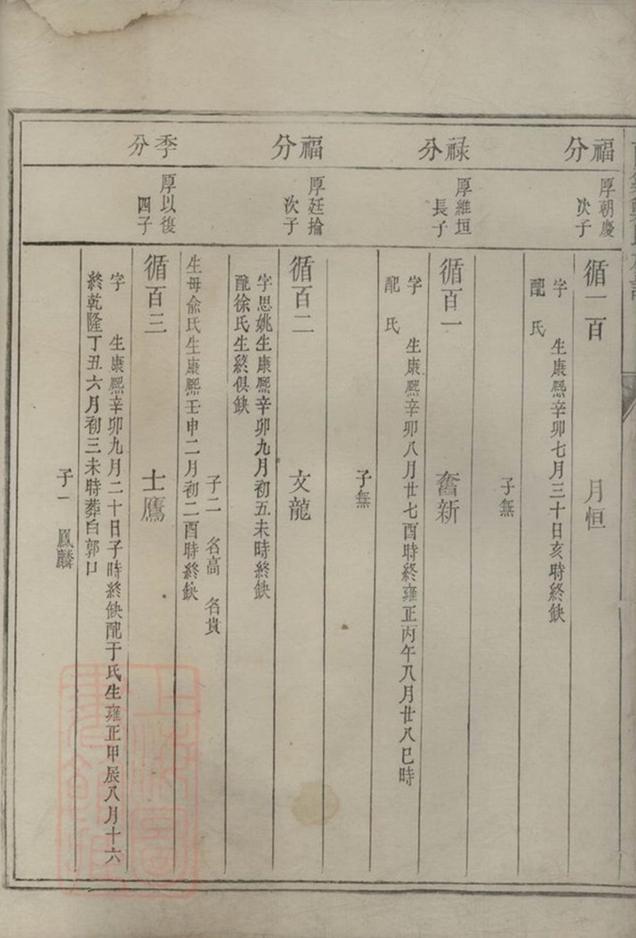 福分
厚朝慶
次子
循一百
月恒
字 生康熙辛卯七月三十日亥時終缺
配 氏
子無
祿分
厚維垣
長子
循百一
奮新
字 生康熙辛卯八月廿七酉時終雍正丙午八月廿八巳時
配 氏
子無
福分
厚廷掄
次子
循百二
文龍
字思姚生康熙辛卯九月初五未時終缺
配徐氏生終俱缺
子二 名高 名貴
季分
厚以復
四子
生母俞氏生康熙壬申二月初二酉時終缺
循百三
士鷹
字 生康熙辛卯九月二十日子時終缺配于氏生雍正甲辰八月十六
終乾隆丁丑六月初三未時葬白郭口
子一 鳳麟